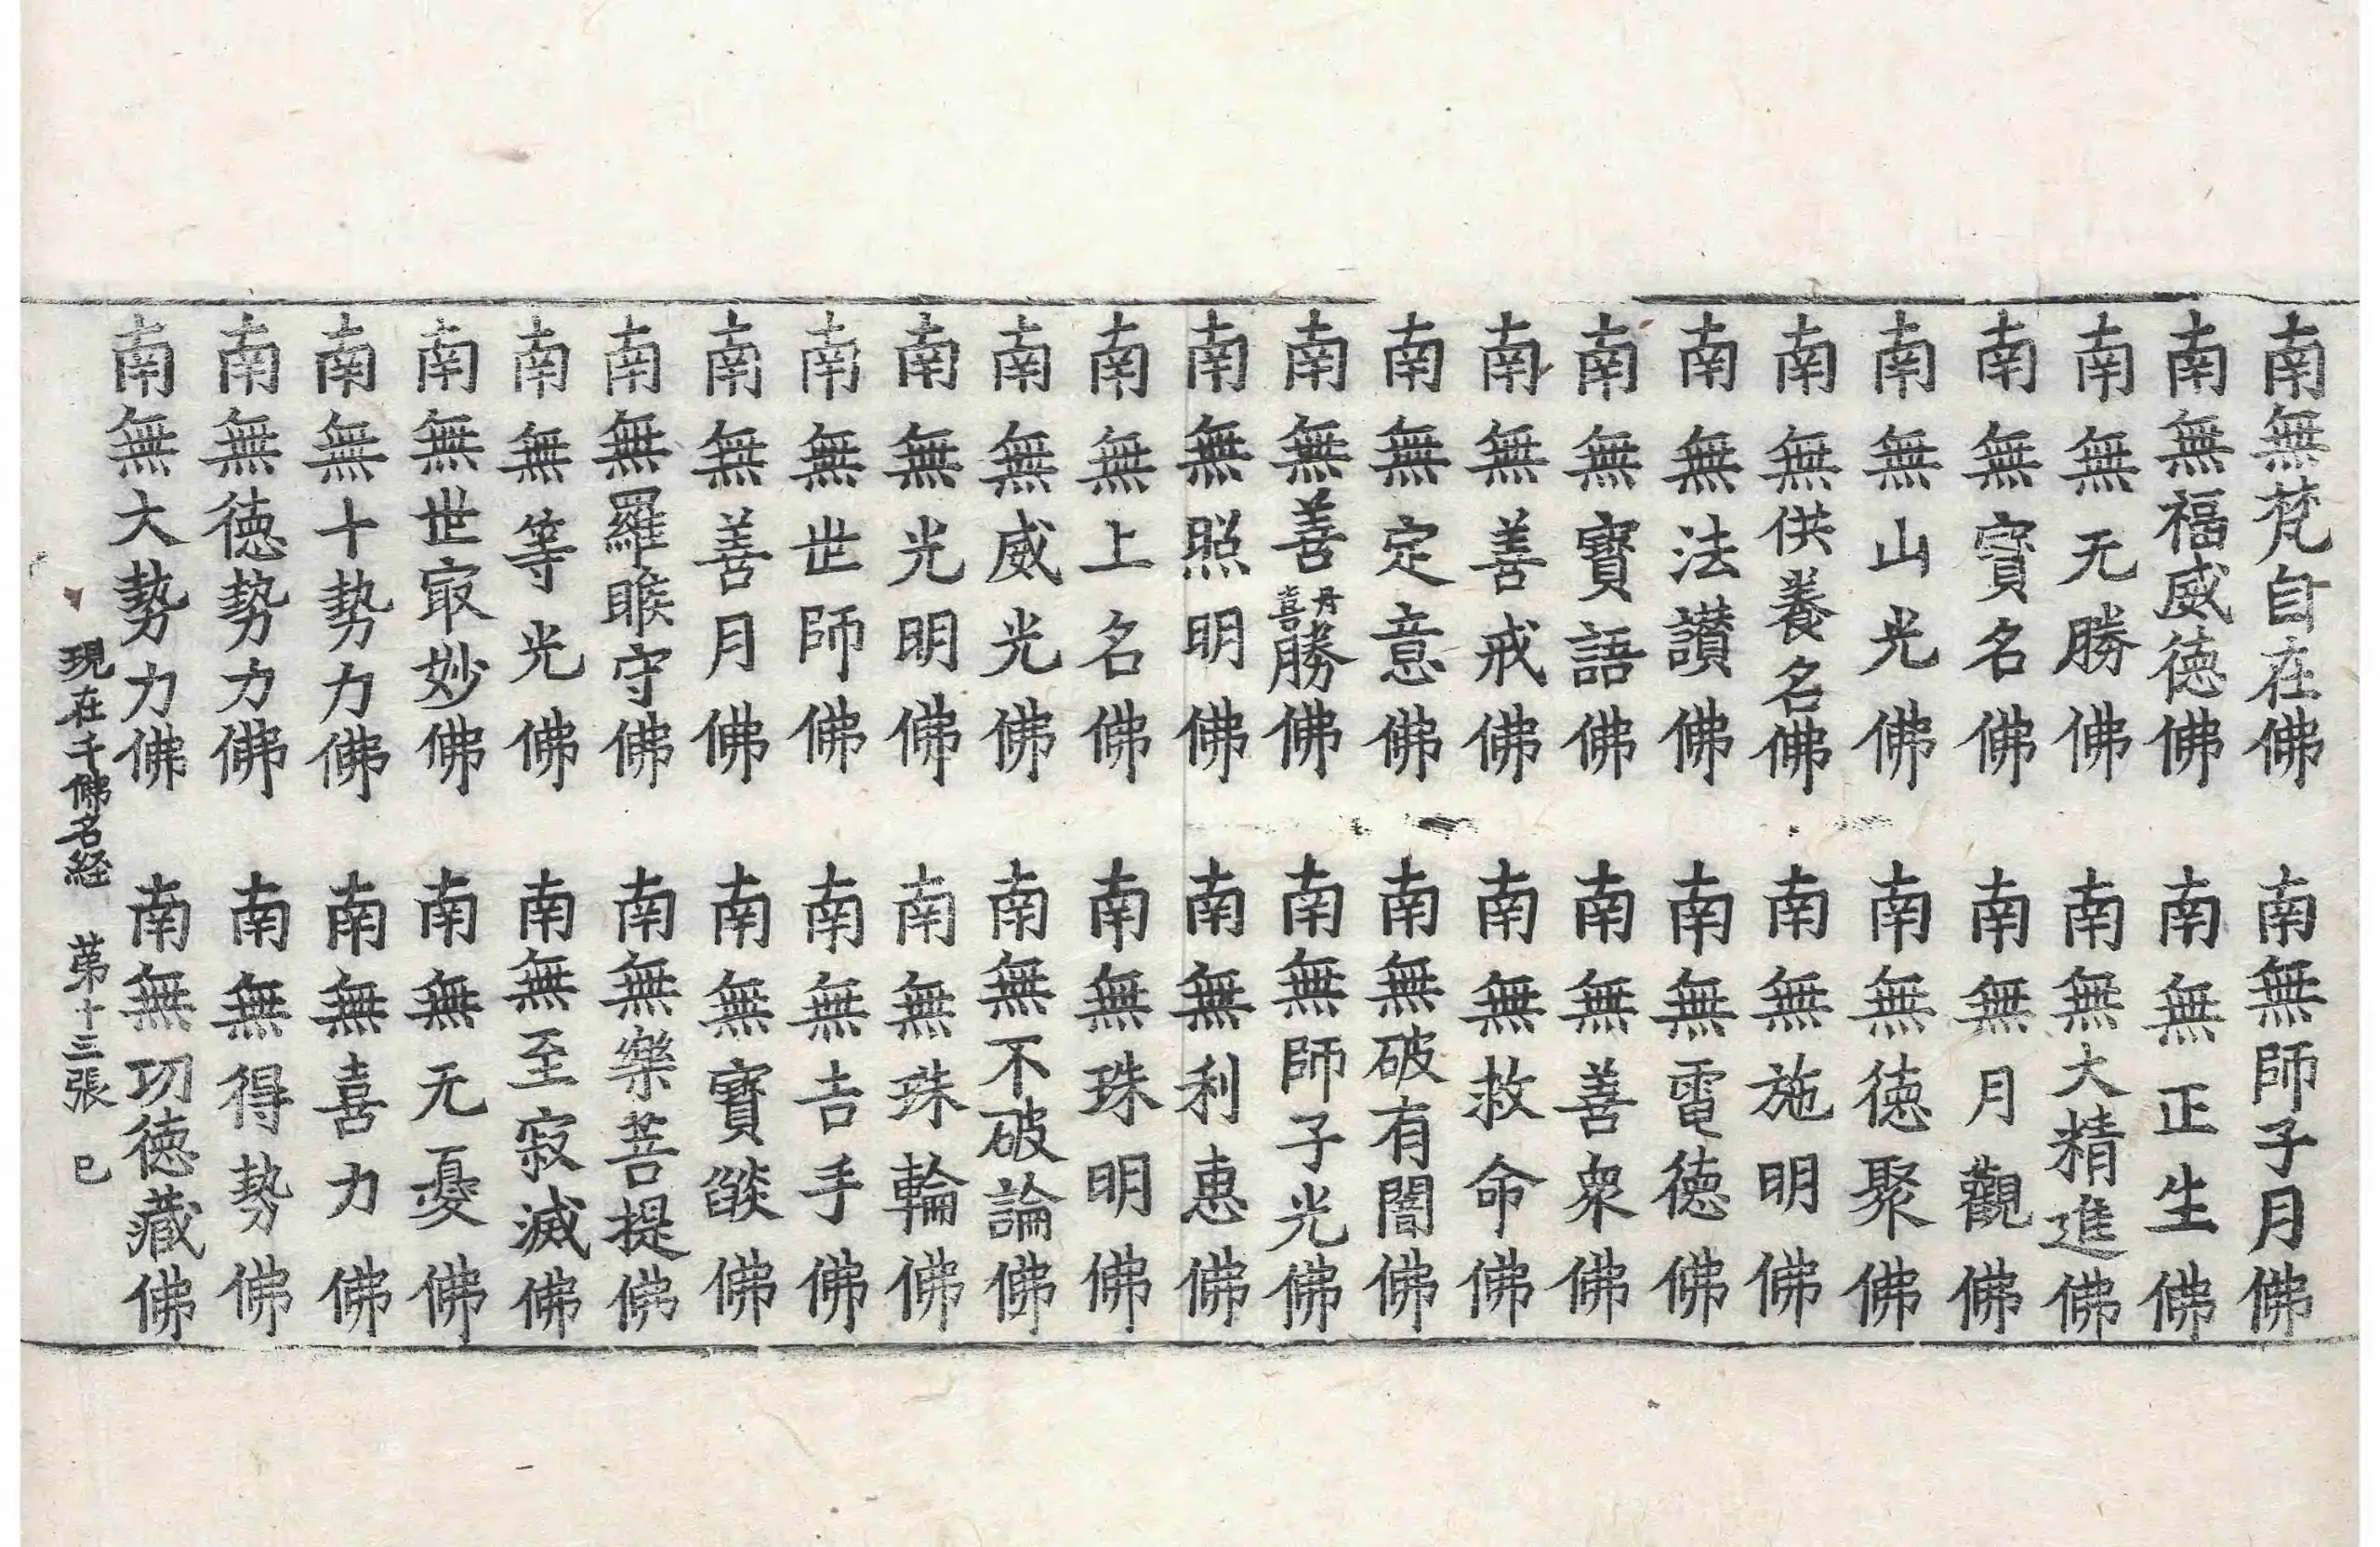 南無梵自在佛　南無師子月佛
南無福威德佛　南無正生佛
南無无勝佛　南無大精進佛
南無寶名佛　南無月觀佛
南無山光佛　南無德聚佛
南無供養名佛　南無施明佛
南無法讃佛　南無電德佛
南無寶語佛　南無善衆佛
南無善戒佛　南無救命佛
南無定意佛　南無破有闇佛
南無善丹喜勝佛　南無師子光佛
南無照明佛　南無利惠佛
南無上名佛　南無珠明佛
南無威光佛　南無不破論佛
南無光明佛　南無珠輪佛
南無世師佛　南無吉手佛
南無善月佛　南無寶燄佛
南無羅睺守佛　南無樂菩提佛
南無等光佛　南無至寂滅佛
南無世㝡妙佛　南無无憂佛
南無十勢力佛　南無喜力佛
南無德勢力佛　南無得勢佛
南無大勢力佛　南無功德藏佛
現在千佛名経　苐十三張　已